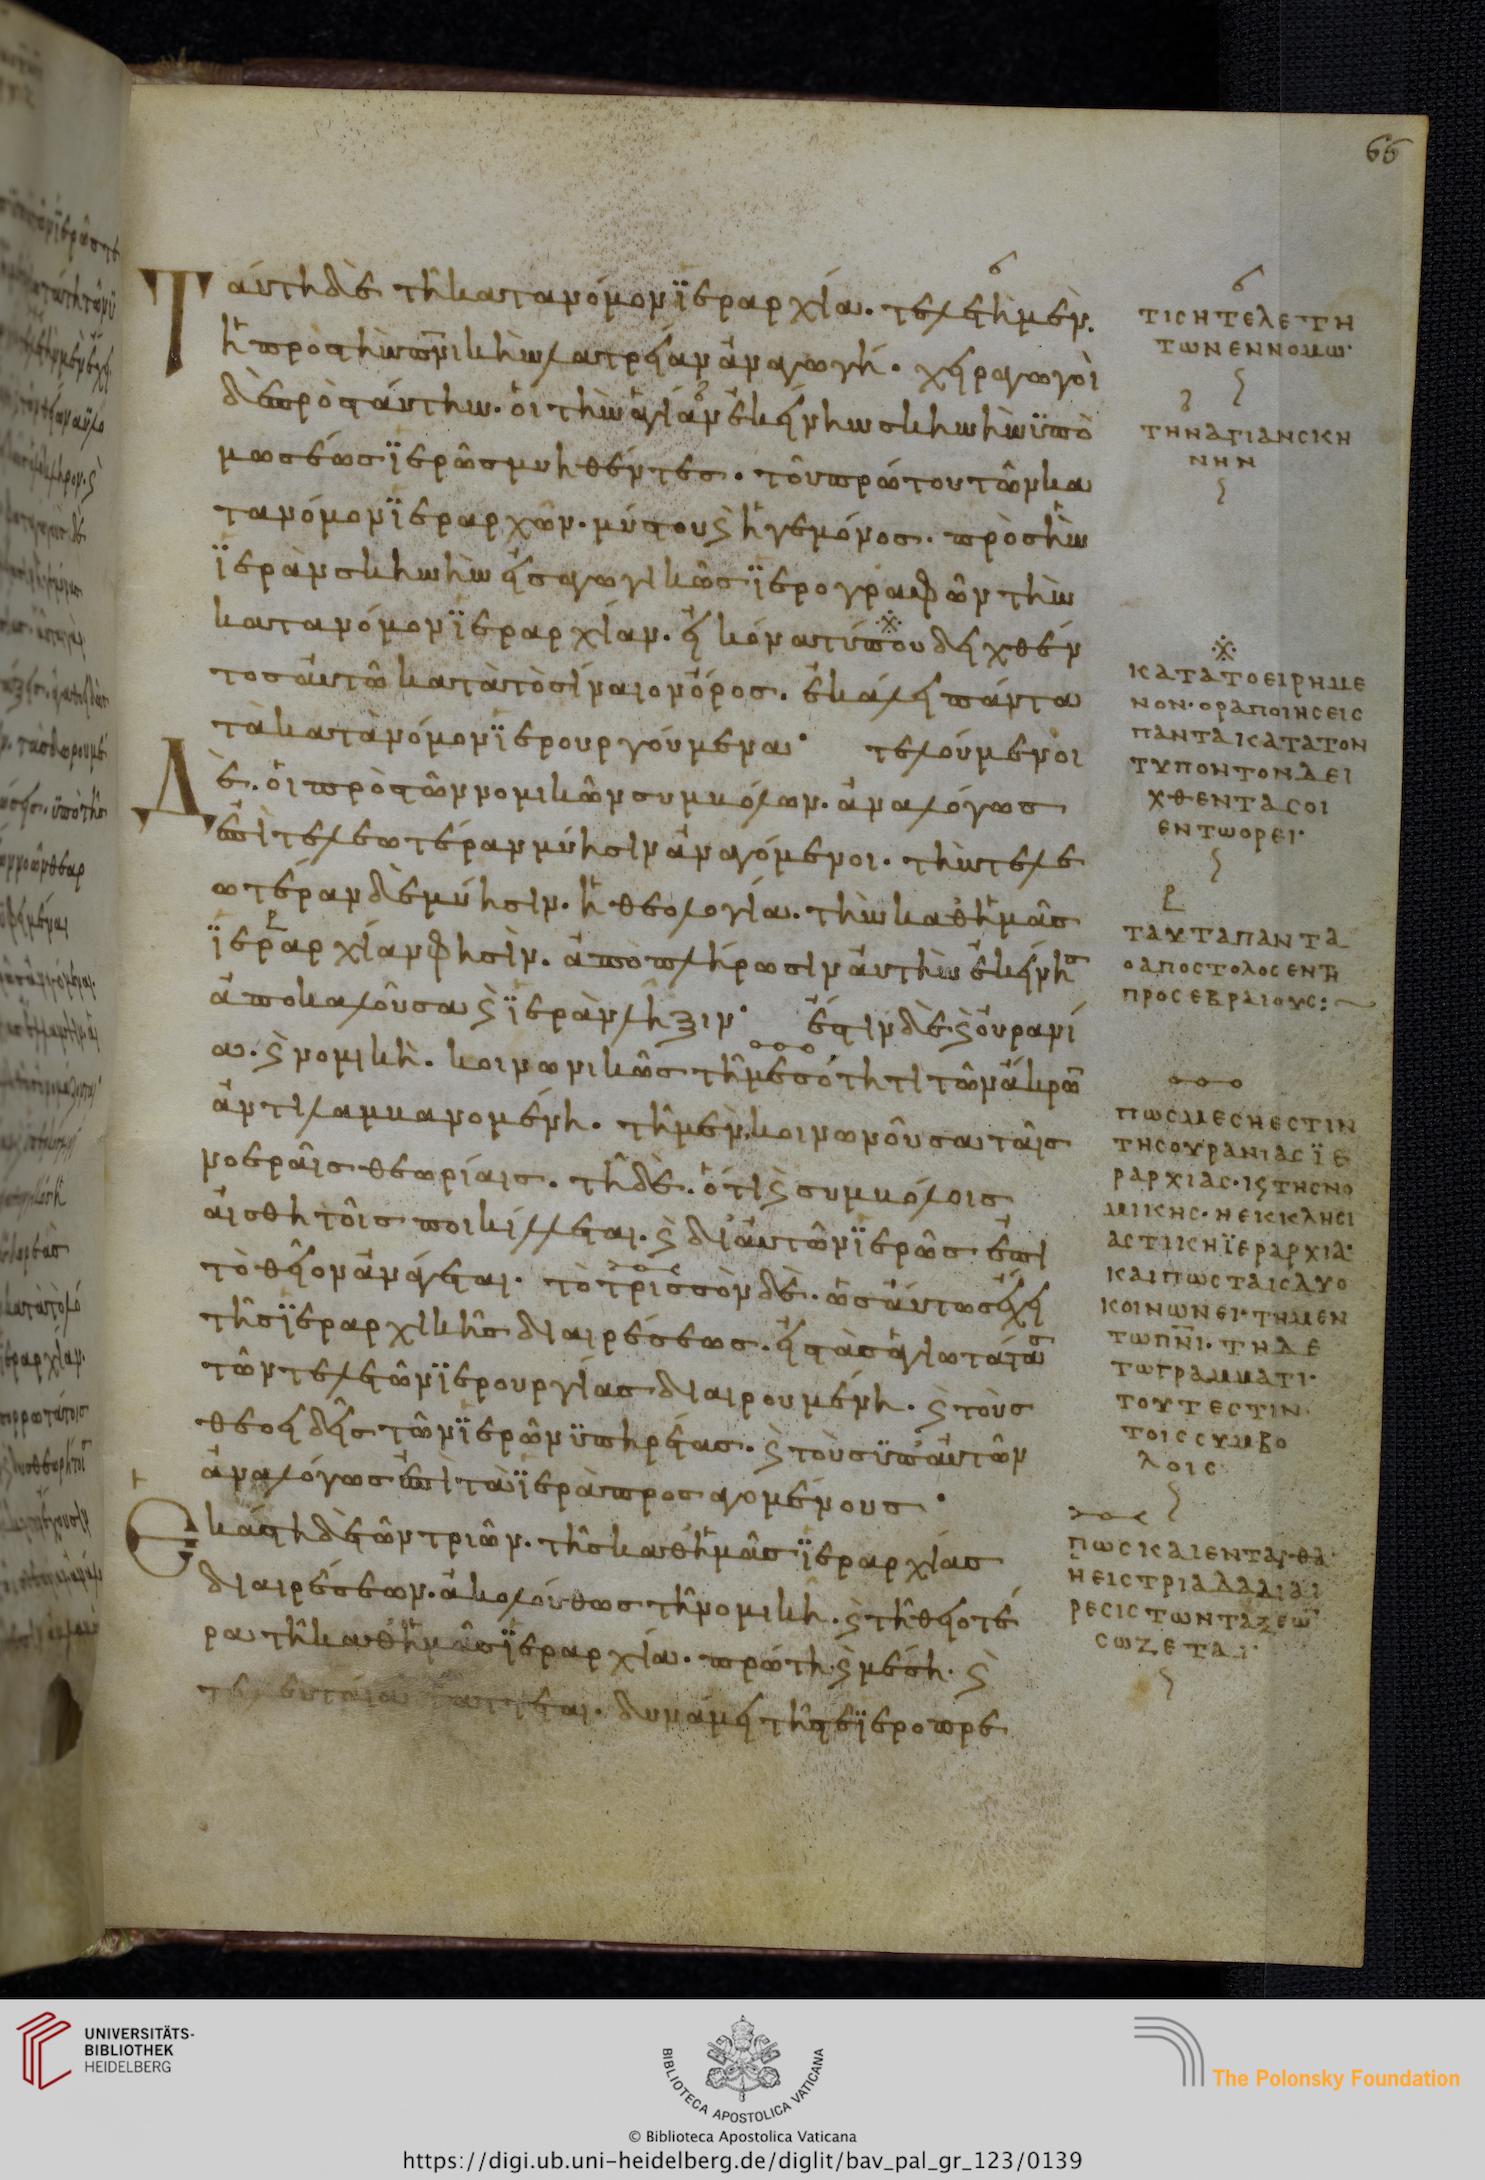 66
Ταύτη δὲ τῆ κατὰ νόμον ϊεραρχία. τελετὴ μὲν.
ἡ πρὸς τὴν πνικὴν λατρείαν ἀναγωγή. χειραγωγοὶ
δὲ πρὸς ταύτην. οἱ τὴν ἁγίαν ἐκείνην σκηνὴν ϋπὸ
μωσέως ϊερῶς μυηθέντες. τοῦ πρώτου τῶν κα
τὰ νόμον ϊεραρχῶν. μύστου ϗ ἡγεμόνος. πρὸς ἣν
ϊερὰν σκηνὴν εἰσαγωγικῶς ϊερογραφῶν τὴν
κατὰ νόμον ϊεραρχίαν. εἰκόνα τύπου δειχθέν
τος αὐτῶ κατὰ τὸ σίναιον ὄρος. ἐκάλει πάντα
τὰ κατὰ νόμον ϊερουργούμενα· τελούμενοι
Δὲ. οἱ πρὸς τῶν νομικῶν συμβόλων. ἀναλόγως
ἐπὶ τελεωτέραν μύησιν ἀναγόμενοι. τὴν τελε
ωτέραν δὲ μύησιν. ἡ θεολογία. τὴν καθ' ἡμᾶς
ϊεραρχίαν φησὶν. ἀποπλήρωσιν αὐτὴν ἐκείνης
ἀποκαλοῦσα ϗ ϊερὰν λῆξιν· ἔστιν δὲ ϗ οὐρανί
α. ϗ νομικὴ. κοινωνικῶς τῆ μεσότητι τῶν ἄκρων
ἀντιλαμβανομένη. τῆ μὲν κοινωνοῦσα ταῖς
νοεραῖς θεωρίαις. τῆ δὲ. ὅτι ϗ συμβόλοις
αἰσθητοῖς ποικίλλεται. ϗ δι' αὐτῶν ϊερῶς ἐπὶ
τὸ θεῖον ἀνάγεται. τὸ τρισσὸν δὲ. ὡσαύτως ἔχει
τῆς ϊεραρχικῆς διαιρέσεως. εἰς τὰς ἁγιωτάτας
τῶν τελετῶν ϊερουργίας διαιρουμένη. ϗ τοὺς
θεοειδεῖς τῶν ϊερῶν ϋπηρέτας. ϗ τοὺς ϋπ' αὐτῶν
ἀναλόγως ἐπὶ τὰ ϊερὰ προσαγομένους·
Ἑκάστη δὲ τῶν τριῶν. τῆς καθ' ἡμᾶς ϊεραρχίας
διαιρέσεων. ἀκολούθως τῆ νομικῆ. ϗ τῆ θειοτέ
ρα τῆ καθ' ἡμᾶς ϊεραρχία. πρώτη. ϗ μέση. ϗ
τελευταία τάττεται. δυνάμει τῆς τε ϊεροπρε
ΤΙϹ Η ΤΕΛΕΤΗ
ΤΩΝ ΕΝ ΝΟΜΩ·
ΤΗΝ ΑΓΙΑΝ ϹΚΗ
ΝΗΝ
ΚΑΤΑ ΤΟ ΕΙΡΗΜΕ
ΝΟΝ· ΟΡΑ ΠΟΙΗϹΕΙϹ
ΠΑΝΤΑ ΚΑΤΑ ΤΟΝ
ΤΥΠΟΝ ΤΟΝ ΔΕΙ
ΧΘΕΝΤΑ ϹΟΙ
ΕΝ ΤΩ ΟΡΕΙ·
ΤΑΥΤΑ ΠΑΝΤΑ
Ο ΑΠΟϹΤΟΛΟϹ ΕΝ ΤΗ
ΠΡΟϹ ΕΒΡΑΙΟΥϹ:
ΠΩϹ ΜΕϹΗ ΕϹΤΙΝ
ΤΗϹ ΟΥΡΑΝΙΑϹ ΪΕ
ΡΑΡΧΙΑϹ· Ϗ ΤΗϹ ΝΟ
ΜΙΚΗϹ· Η ΕΚΚΛΗϹΙ
ΑϹΤΙΚΗ ΪΕΡΑΡΧΙΑ·
ΚΑΙ ΠΩϹ ΤΑΙϹ ΔΥΟ
ΚΟΙΝΩΝΕΙ· ΤΗ ΜΕΝ
ΤΩ ΠΝΙ· ΤΗ ΔΕ
ΤΩ ΓΡΑΜΜΑΤΙ·
ΤΟΥΤΕϹΤΙΝ·
ΤΟΙϹ ϹΥΜΒΟ
ΛΟΙϹ
ΠΩϹ ΚΑΙ ΕΝΤΑΥΘΑ
Η ΕΙϹ ΤΡΙΑΔΑ ΔΙΑΙ
ΡΕϹΙϹ ΤΩΝ ΤΑΞΕΩΝ
ϹΩΖΕΤΑΙ·
UNIVERSITÄTS-
BIBLIOTHEK
HEIDELBERG
BIBLIOTECA APOSTOLICA VATICANA
The Polonsky Foundation
© Biblioteca Apostolica Vaticana
https://digi.ub.uni-heidelberg.de/diglit/bav_pal_gr_123/0139